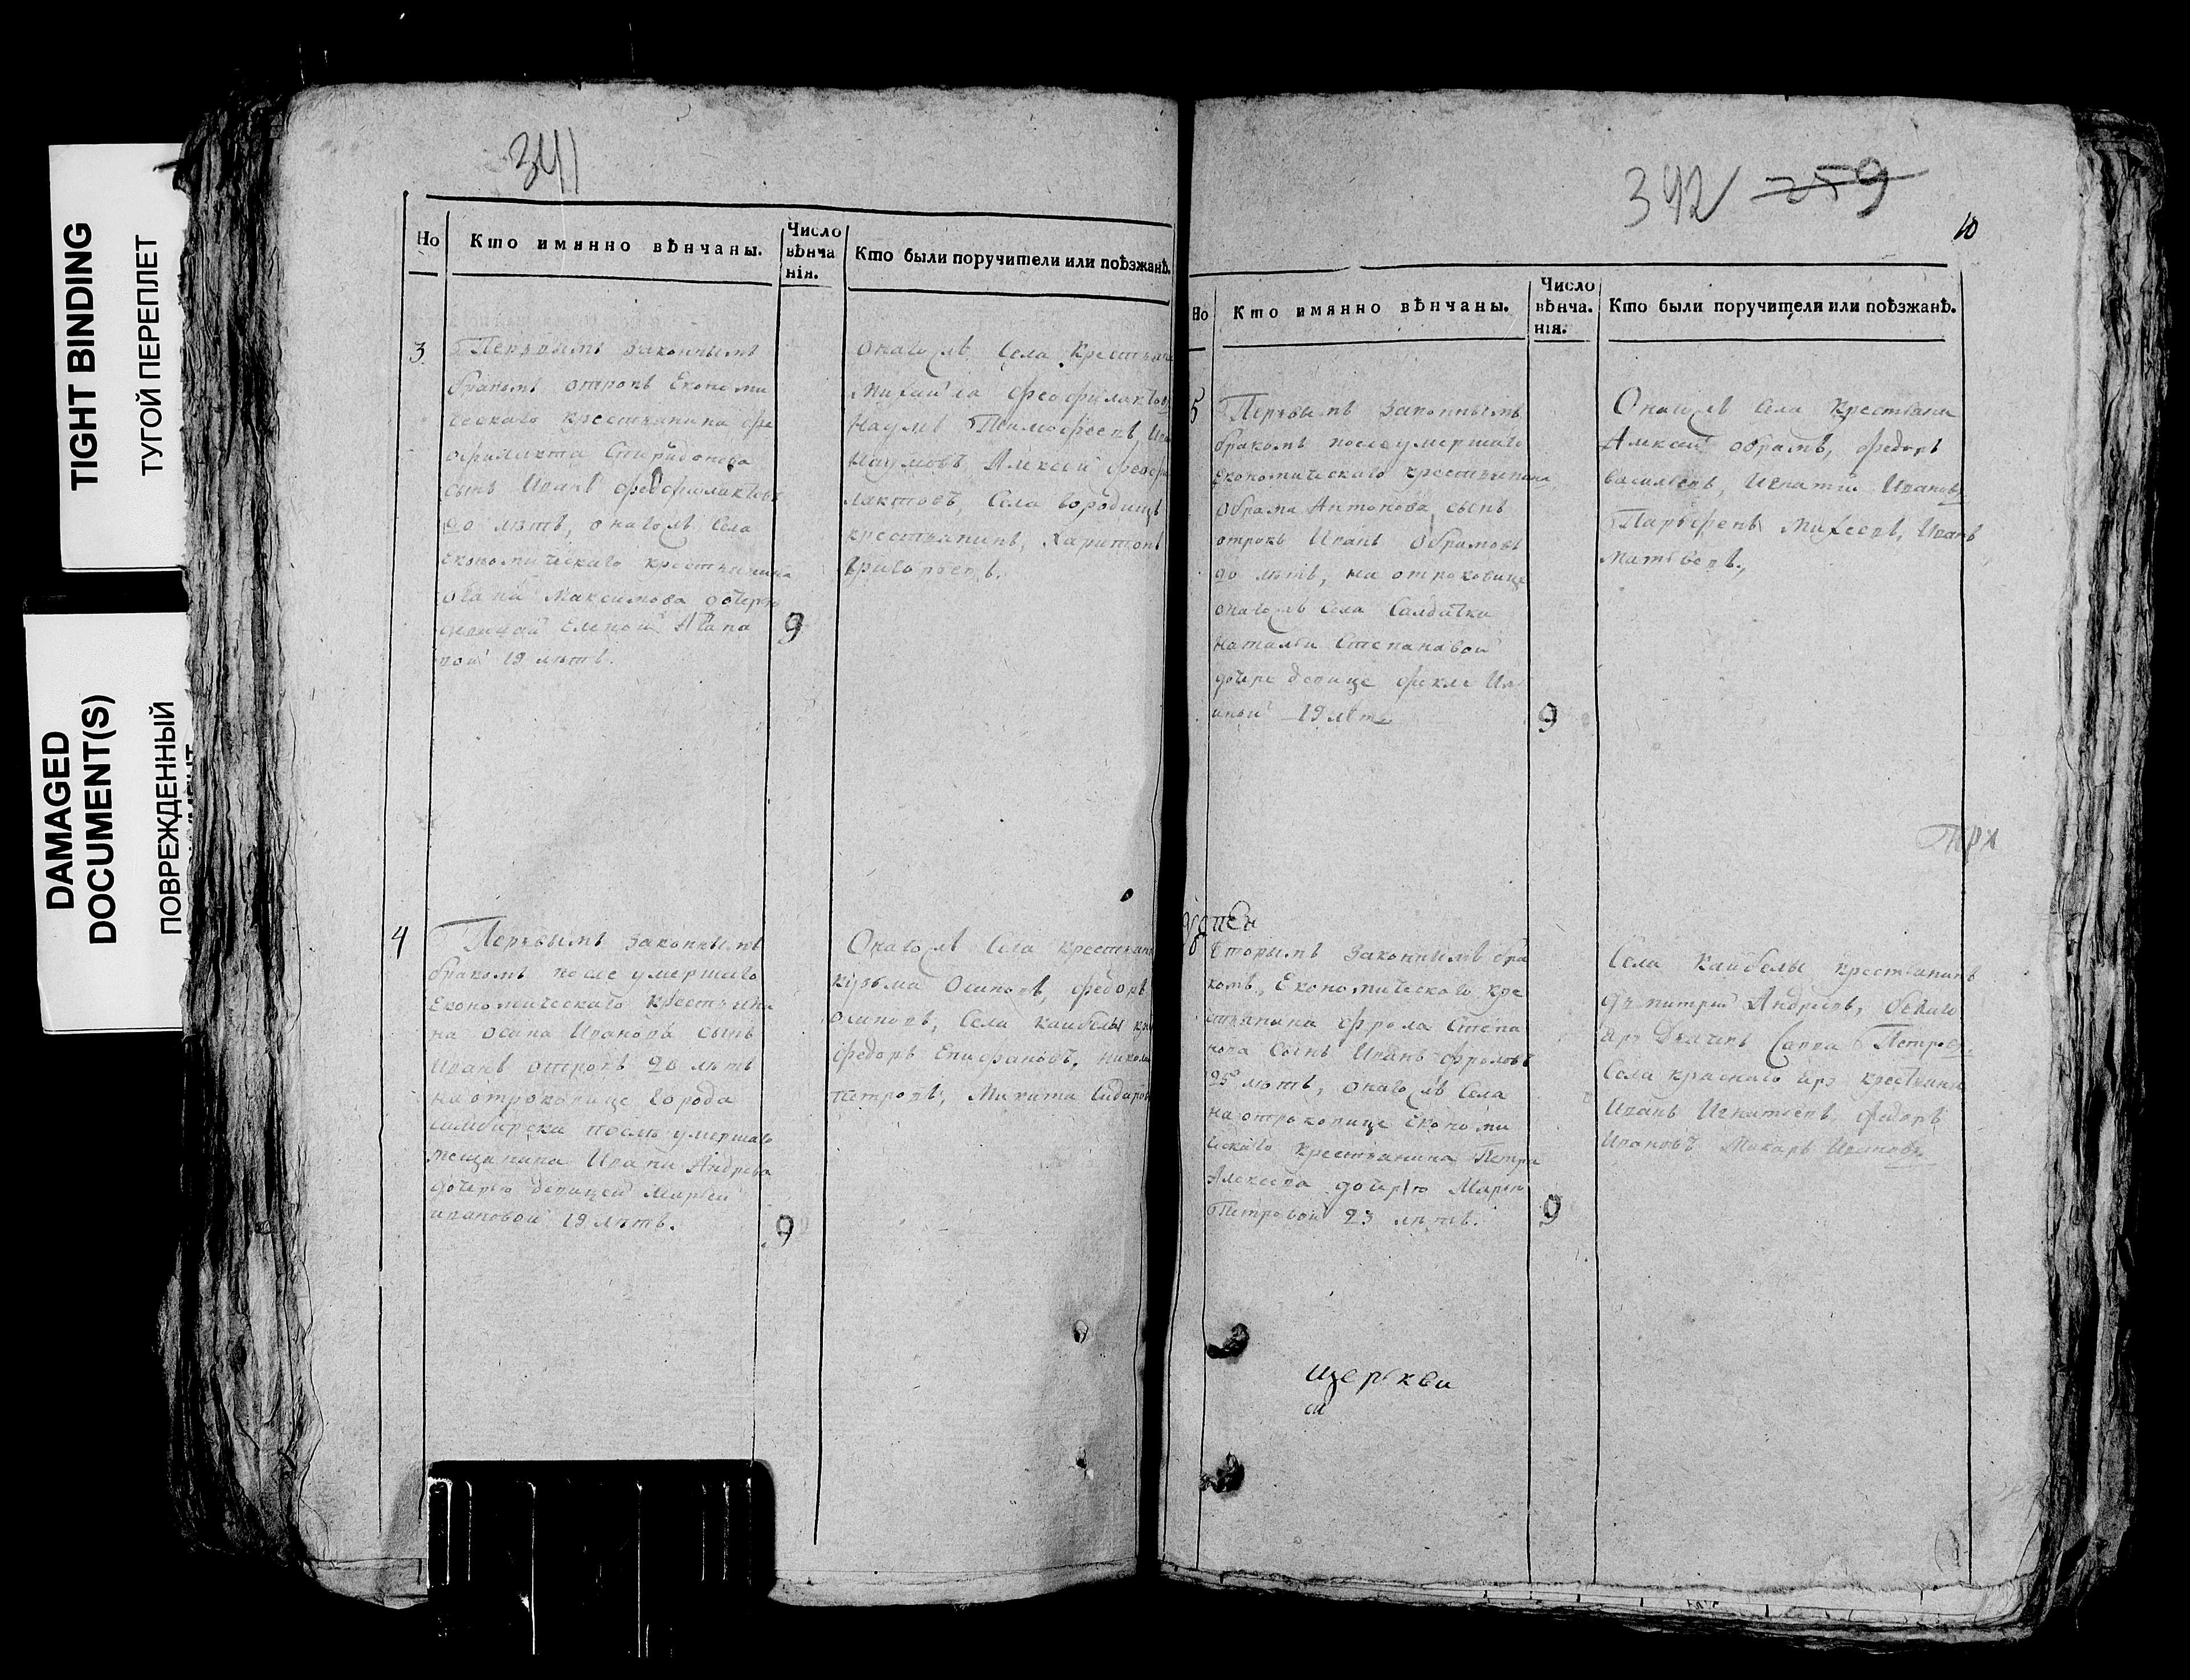 TIGHT BINDING
ТУГОЙ ПЕРЕПЛЕТ
DAMAGED
DOCUMENT(S)
ПОВРЕЖДЕННЫЙ
341
Но
Кто имянно вѣнчаны.
Число
вѣнча
нія.
Кто были поручители или поѣзжанѣ.
3
Первымъ законнымъ
бракомъ отрокъ Економи
ческаго крестьянина Фе
офилакта Спиридонова
сынъ Иванъ Феофилактовъ
20 лѣтъ, онагожъ села
економическаго крестьянина
Максимова дочерью
девицой Еленой
ной 19 лѣтъ.
9
онагожъ села крестьяне
Михаила Феофилактовъ
Наумъ Тимофеевъ,
Наумовъ, Алексей Феофи
лактовъ, села Городищъ
крестьянинъ, Харитонъ
Григорьевъ.
4
Первымъ законнымъ
бракомъ после умершаго
Економическаго крестьяни
на Осипа Иванова сынъ
Иванъ отрокъ 20 лѣтъ
на отроковице города
симбирска послѣ умершаго
мещанина Ивана Андрева
дочерью девицей Марьей
ивановой 19 лѣтъ.
9
Онагожъ села крестьяне
кузьма Осиповъ, Федоръ
осиповъ, села каибелы
Федоръ Епифановъ, никола
петровъ, Микита Сидаровъ
342 259
10
Но
Кто имянно вѣнчаны.
Число
вѣнча.
нія.
Кто были поручители или поѣзжанѣ.
5
Первымъ законнымъ
бракомъ после умершаго
Економическаго крестьянина
Обрама Антонова сынъ
отрокъ Иванъ Обрамовъ
20 лѣтъ, на отроковице
онагожъ села Салдатки
Натальи Степановой
дочере девице Фекле
19 лѣтъ
9
Онагожъ села крестьяне
Алексей Федоръ
Васильевъ, Игнатий Ивановъ
Парфенъ Михеевъ, Иванъ
Матвеевъ,
6
Вторымъ законнымъ бра
комъ, Економическаго кре
стьянина Фрола Степа
нова сынъ Иванъ Фроловъ
25 лѣтъ, онагожъ села
на отроковице економи
ческаго крестьянина Петра
Алексева дочерью Марью
Петровой 23 лѣтъ.
9
Села Каибелы крестьянинъ
Дмитрий Андреевъ, белаго
яру Дьячекъ Савва Петровъ
Села краснаго яру крестьяне
Иванъ Игнатьевъ Федоръ
Ивановъ Макаръ Ивановъ
ицеркви
си